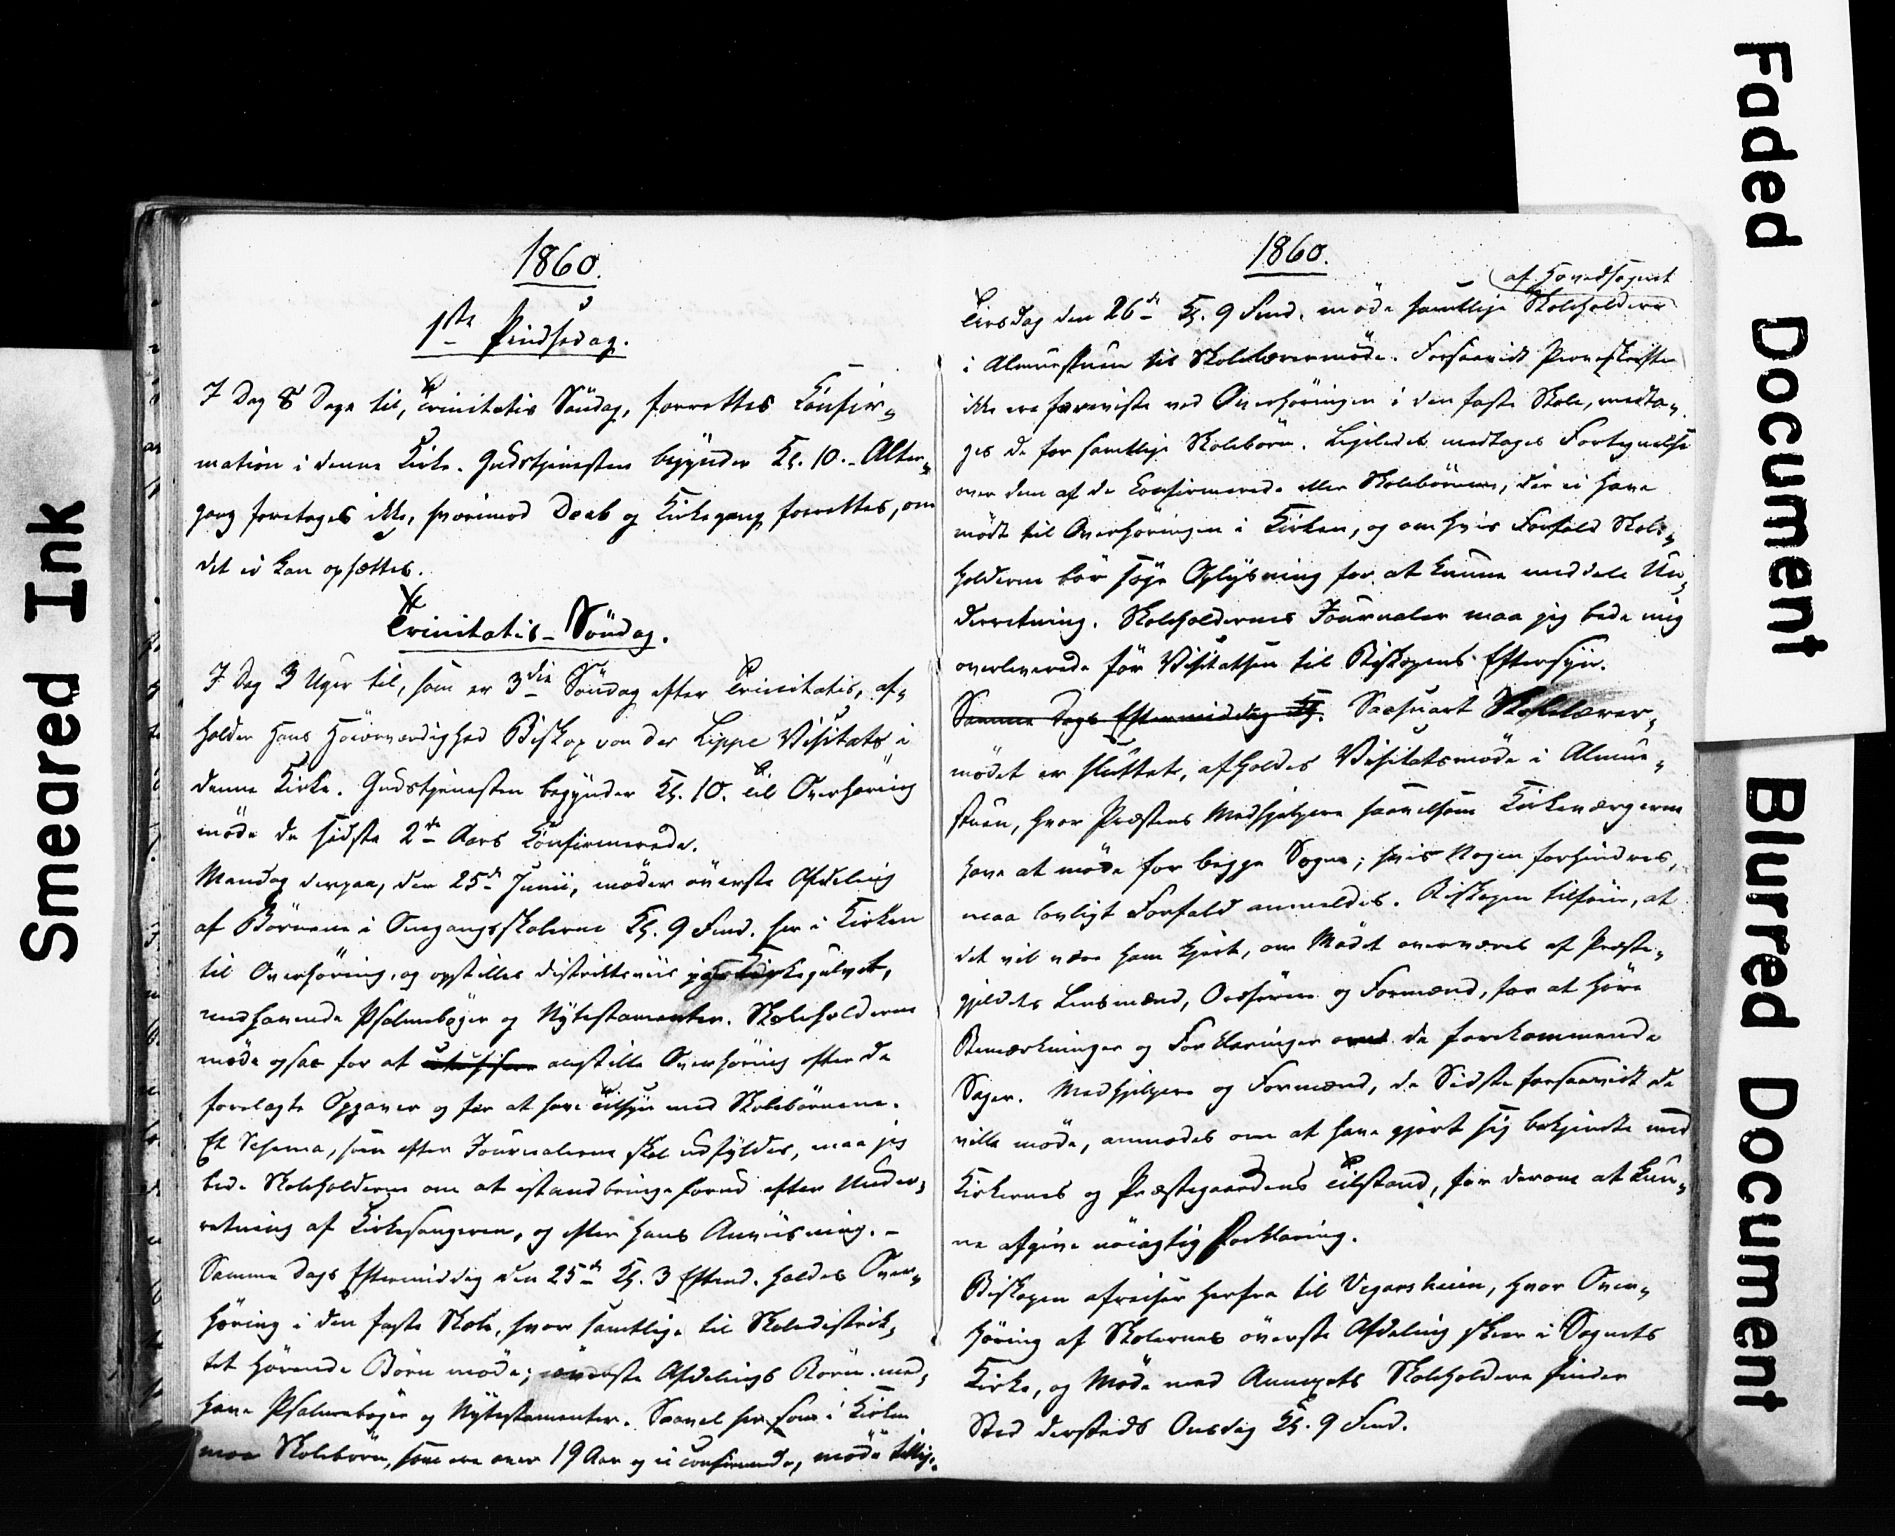 Smeared Ink
1860.
1ste Pindsedag.
I Dag 8 Dage til, Trinitatis Søndag, forrettes Confir-
mation i denne Kirke. Gudstjenesten begynder Kl. 10. - Alter-
gang foretages ikke, hvorimod Daab og Kirkegang forrettes, om
det ei kan opsættes.
Trinitatis-Søndag.
I Dag 3 Uger til, som er 3die Søndag efter Trinitatis, af-
holder Hans Høiærværdighed Biskop von der Lippe Visitats i
denne Kirke. Gudstjenesten begynder Kl. 10. Til Overhøring
møde de sidste 2de Aars Confirmerede.
Mandag derpaa, den 25de Junii, møder øverste Afdeling
af Børnene i Omgangsskolerne Kl. 9 Fmd. her i Kirken
til Overhøring, og opstilles districtsviis paa Kirkegulvet,
medhavende Psalmebøger og Nytestamenter. Skoleholderne
møde ogsaa for at anstille Overhøring efter de
forelagte Opgaver og for at have Tilsyn med Skolebørnene.
Et Schema, som efter Journalerne skal udfyldes, maa jeg
bede Skoleholderne om at istandbringe forud efter Under-
retning af Kirkesangeren, og efter hans Anviisning. -
Samme Dags Eftermiddag den 25de Kl. 3 Eftmd. holdes Over-
høring i den faste Skole, hvor samtlige til Skoledistrik-
tet hørende Børn møde; øverste Afdelings Børn med-
have Psalmebøger og Nytestamenter. Saavel her som i Kirken
maa Skolebørn, som ere over 19 Aar og ei confirmerede, møde tillige.
1860.
af Hovedsognet
Tirsdag den 26de Kl. 9 Fmd. møde samtlige Skoleholdere
i Almuestuen til Skolelærermøde. Forsaavidt Prøveskrifter
ikke ere foreviste ved Overhøringen i den faste Skole, medta-
ges de for samtlige Skolebørn. Ligeledes medtages Fortegnelse
over dem af de Confirmerede eller Skolebørnene, der ei have
mødt til Overhøringen i Kirken, og om hvis Forfald Skole-
holderne bør søge Oplysning for at kunne meddele Un-
derretning. Skoleholdernes Journaler maa jeg bede mig
overleverede før Visitatsen til Biskopens Eftersyn.
Samme Dags Eftermiddag Kl. Saasnart Skolelærer-
mødet er sluttet, afholdes Visitatsmøde i Almue-
stuen, hvor Præstens Medhjelpere saavelsom Kirkeværgerne
have at møde for begge Sogne; hvis Nogen forhindres,
maa lovligt Forfald anmeldes. Biskopen tilføier, at
det vil være ham kjert, om Mødet overværes af Præste-
gjeldets Lensmænd, Ordførere og Formænd, for at høre
Bemærkninger og Forklaringer om de forekommende
Sager. Medhjelpere og Formænd, de Sidste forsaavidt de
ville møde, anmodes om at have gjort sig bekjendte med
Kirkernes og Præstegaardens Tilstand, for derom at kun-
ne afgive nøiagtig Forklaring.
Biskopen afreiser herfra til Vegarsheien, hvor Over-
høring af Skolernes øverste Afdeling skeer i Sognets
Kirke, og Møde med Annexets Skoleholdere finder
Sted dersteds Onsdag Kl. 9 Fmd.
Faded Document
Blurred Document